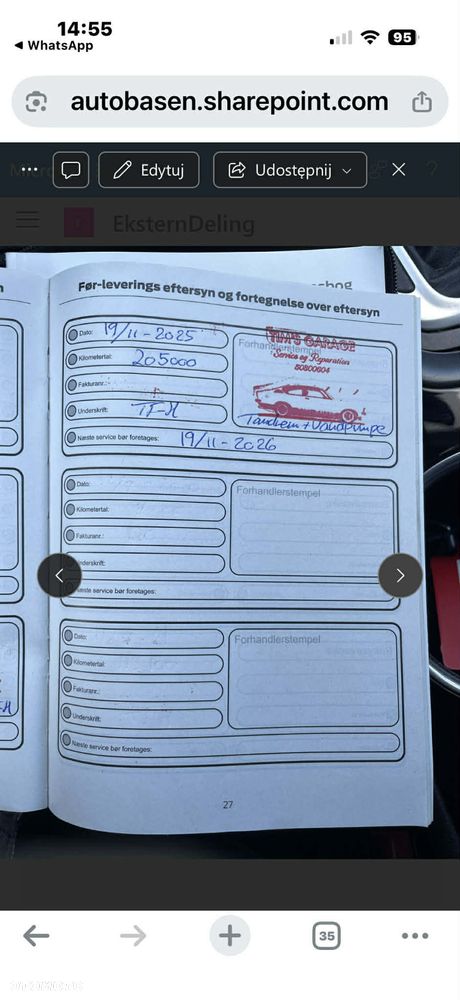 14:55
WhatsApp
95
autobasen.sharepoint.com
Edytuj
Udostępnij
EksternDeling
Før-leverings eftersyn og fortegnelse over eftersyn
Dato: 19/11-2025
Forhandlerstempel
TIM'S GARAGE
Service og Reparation
50800604
Kilometertal: 205000
Fakturanr.:
Underskrift: TF-H
Tandrem + Vandpumpe
Næste service bør foretages: 19/11-2026
Dato:
Forhandlerstempel
Kilometertal:
Fakturanr.:
Underskrift:
Næste service bør foretages:
Dato:
Forhandlerstempel
Kilometertal:
Fakturanr.:
Underskrift:
Næste service bør foretages:
27
35